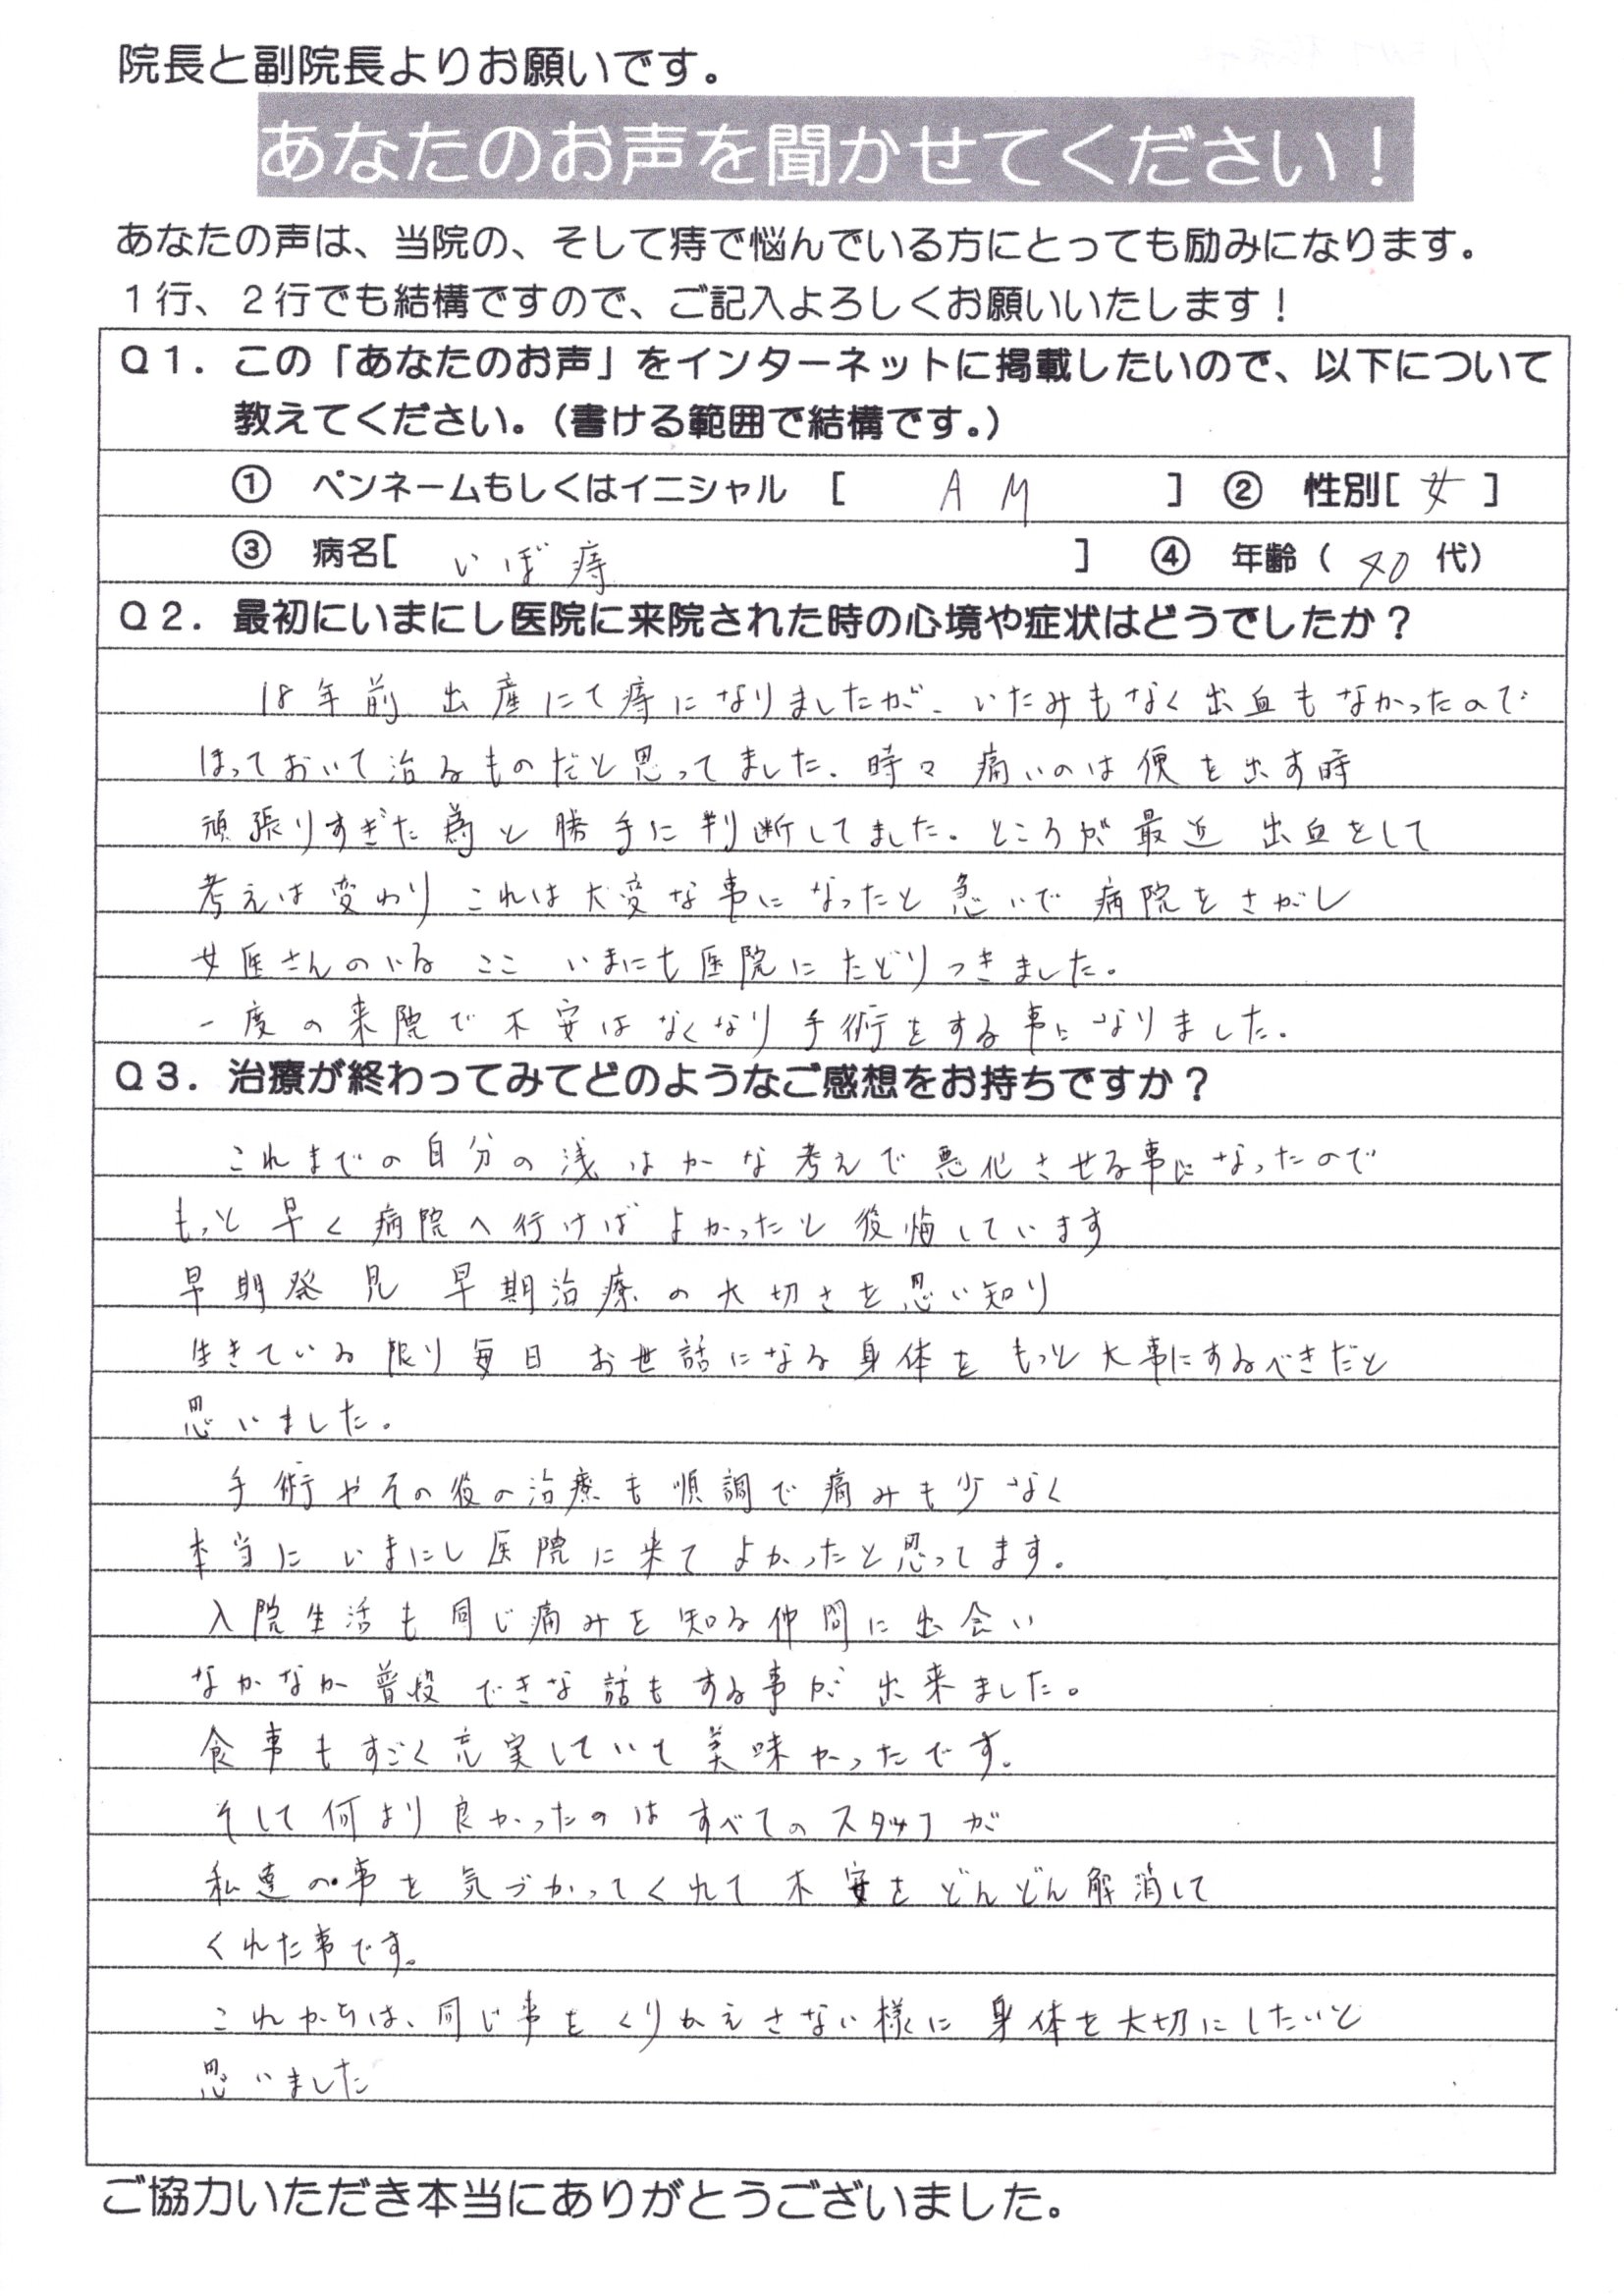 院長と副院長よりお願いです。
あなたのお声を聞かせてください！
あなたの声は、当院の、そして痔で悩んでいる方にとっても励みになります。
１行、２行でも結構ですので、ご記入よろしくお願いいたします！
Ｑ１．この「あなたのお声」をインターネットに掲載したいので、以下について
教えてください。（書ける範囲で結構です。）
① ペンネームもしくはイニシャル [ A M ] ② 性別[ 女 ]
③ 病名[ いぼ痔 ] ④ 年齢（ 40 代）
Ｑ２．最初にいまにし医院に来院された時の心境や症状はどうでしたか？
18年前 出産にて痔になりましたが、いたみもなく出血もなかったので
ほっておいて治るものだと思ってました。時々 痛いのは便を出す時
頑張りすぎた為と勝手に判断してました。ところが最近 出血をして
考えは変わり これは大変な事になったと急いで病院をさがし
女医さんのいる ここ いまにし医院にたどりつきました。
一度の来院で不安はなくなり手術をする事になりました。
Ｑ３．治療が終わってみてどのようなご感想をお持ちですか？
これまでの自分の浅はかな考えで悪化させる事になったので
もっと早く病院へ行けばよかったと後悔しています
早期発見 早期治療の大切さを思い知り
生きている限り毎日 お世話になる身体を もっと大事にするべきだと
思いました。
手術やその後の治療も順調で痛みも少なく
本当に いまにし医院に来てよかったと思ってます。
入院生活も同じ痛みを知る仲間に出会い
なかなか普段できな話もする事が出来ました。
食事もすごく充実していて美味かったです。
そして何より良かったのは すべてのスタッフが
私達の事を気づかってくれて不安をどんどん解消して
くれた事です。
これからは、同じ事をくりかえさない様に身体を大切にしたいと
思いました
ご協力いただき本当にありがとうございました。